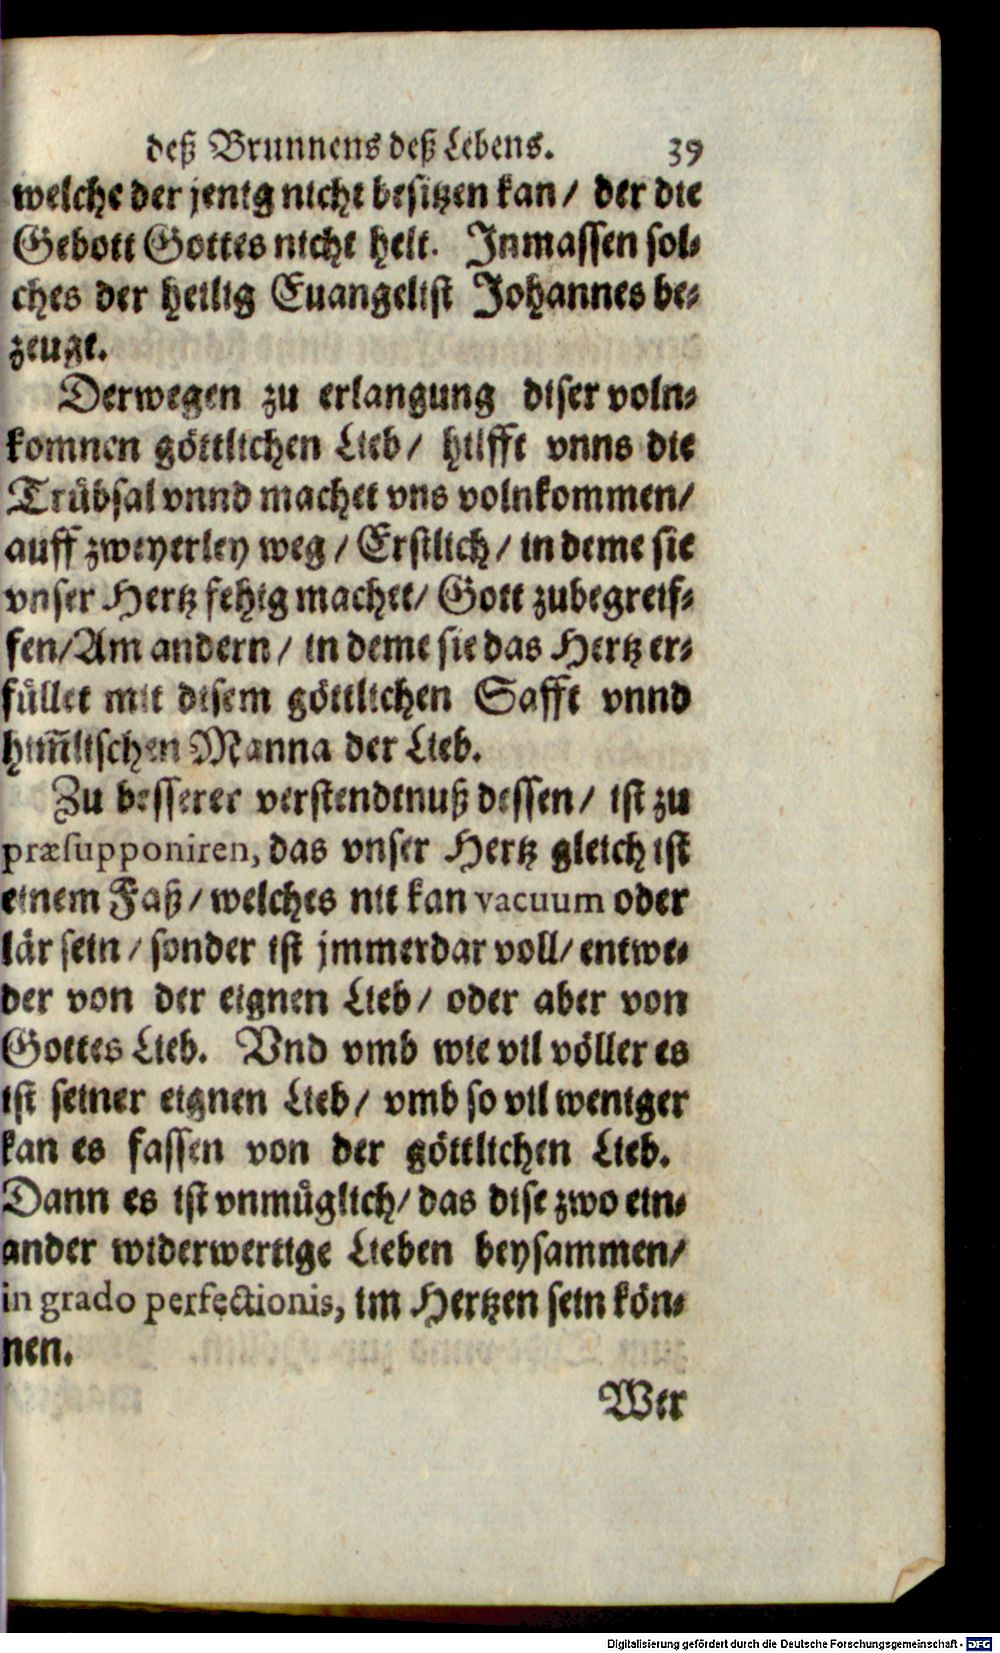 deß Brunnens deß Lebens. 39
welche der jenig nicht besitzen kan/ der die
Gebott Gottes nicht helt. Inmassen sol-
ches der heilig Euangelist Johannes be-
zeugt.
Derwegen zu erlangung diser voln-
komnen göttlichen Lieb/ hilfft vnns die
Trübsal vnnd machet vns volnkommen/
auff zweyerley weg/ Erstlich/ in deme sie
vnser Hertz fehig machet/ Gott zubegreif-
fen/ Am andern/ in deme sie das Hertz er-
füllet mit disem göttlichen Safft vnnd
him̃lischen Manna der Lieb.
Zu besserer verstendtnuß dessen/ ist zu
præsupponiren, das vnser Hertz gleich ist
einem Faß/ welches nit kan vacuum oder
lär sein/ sonder ist jmmerdar voll/ entwe-
der von der eignen Lieb/ oder aber von
Gottes Lieb. Vnd vmb wie vil völler es
ist seiner eignen Lieb/ vmb so vil weniger
kan es fassen von der göttlichen Lieb.
Dann es ist vnmüglich/ das dise zwo ein-
ander widerwertige Lieben beysammen/
in grado perfectionis, im Hertzen sein kön-
nen.
Wir
Digitalisierung gefördert durch die Deutsche Forschungsgemeinschaft - DFG